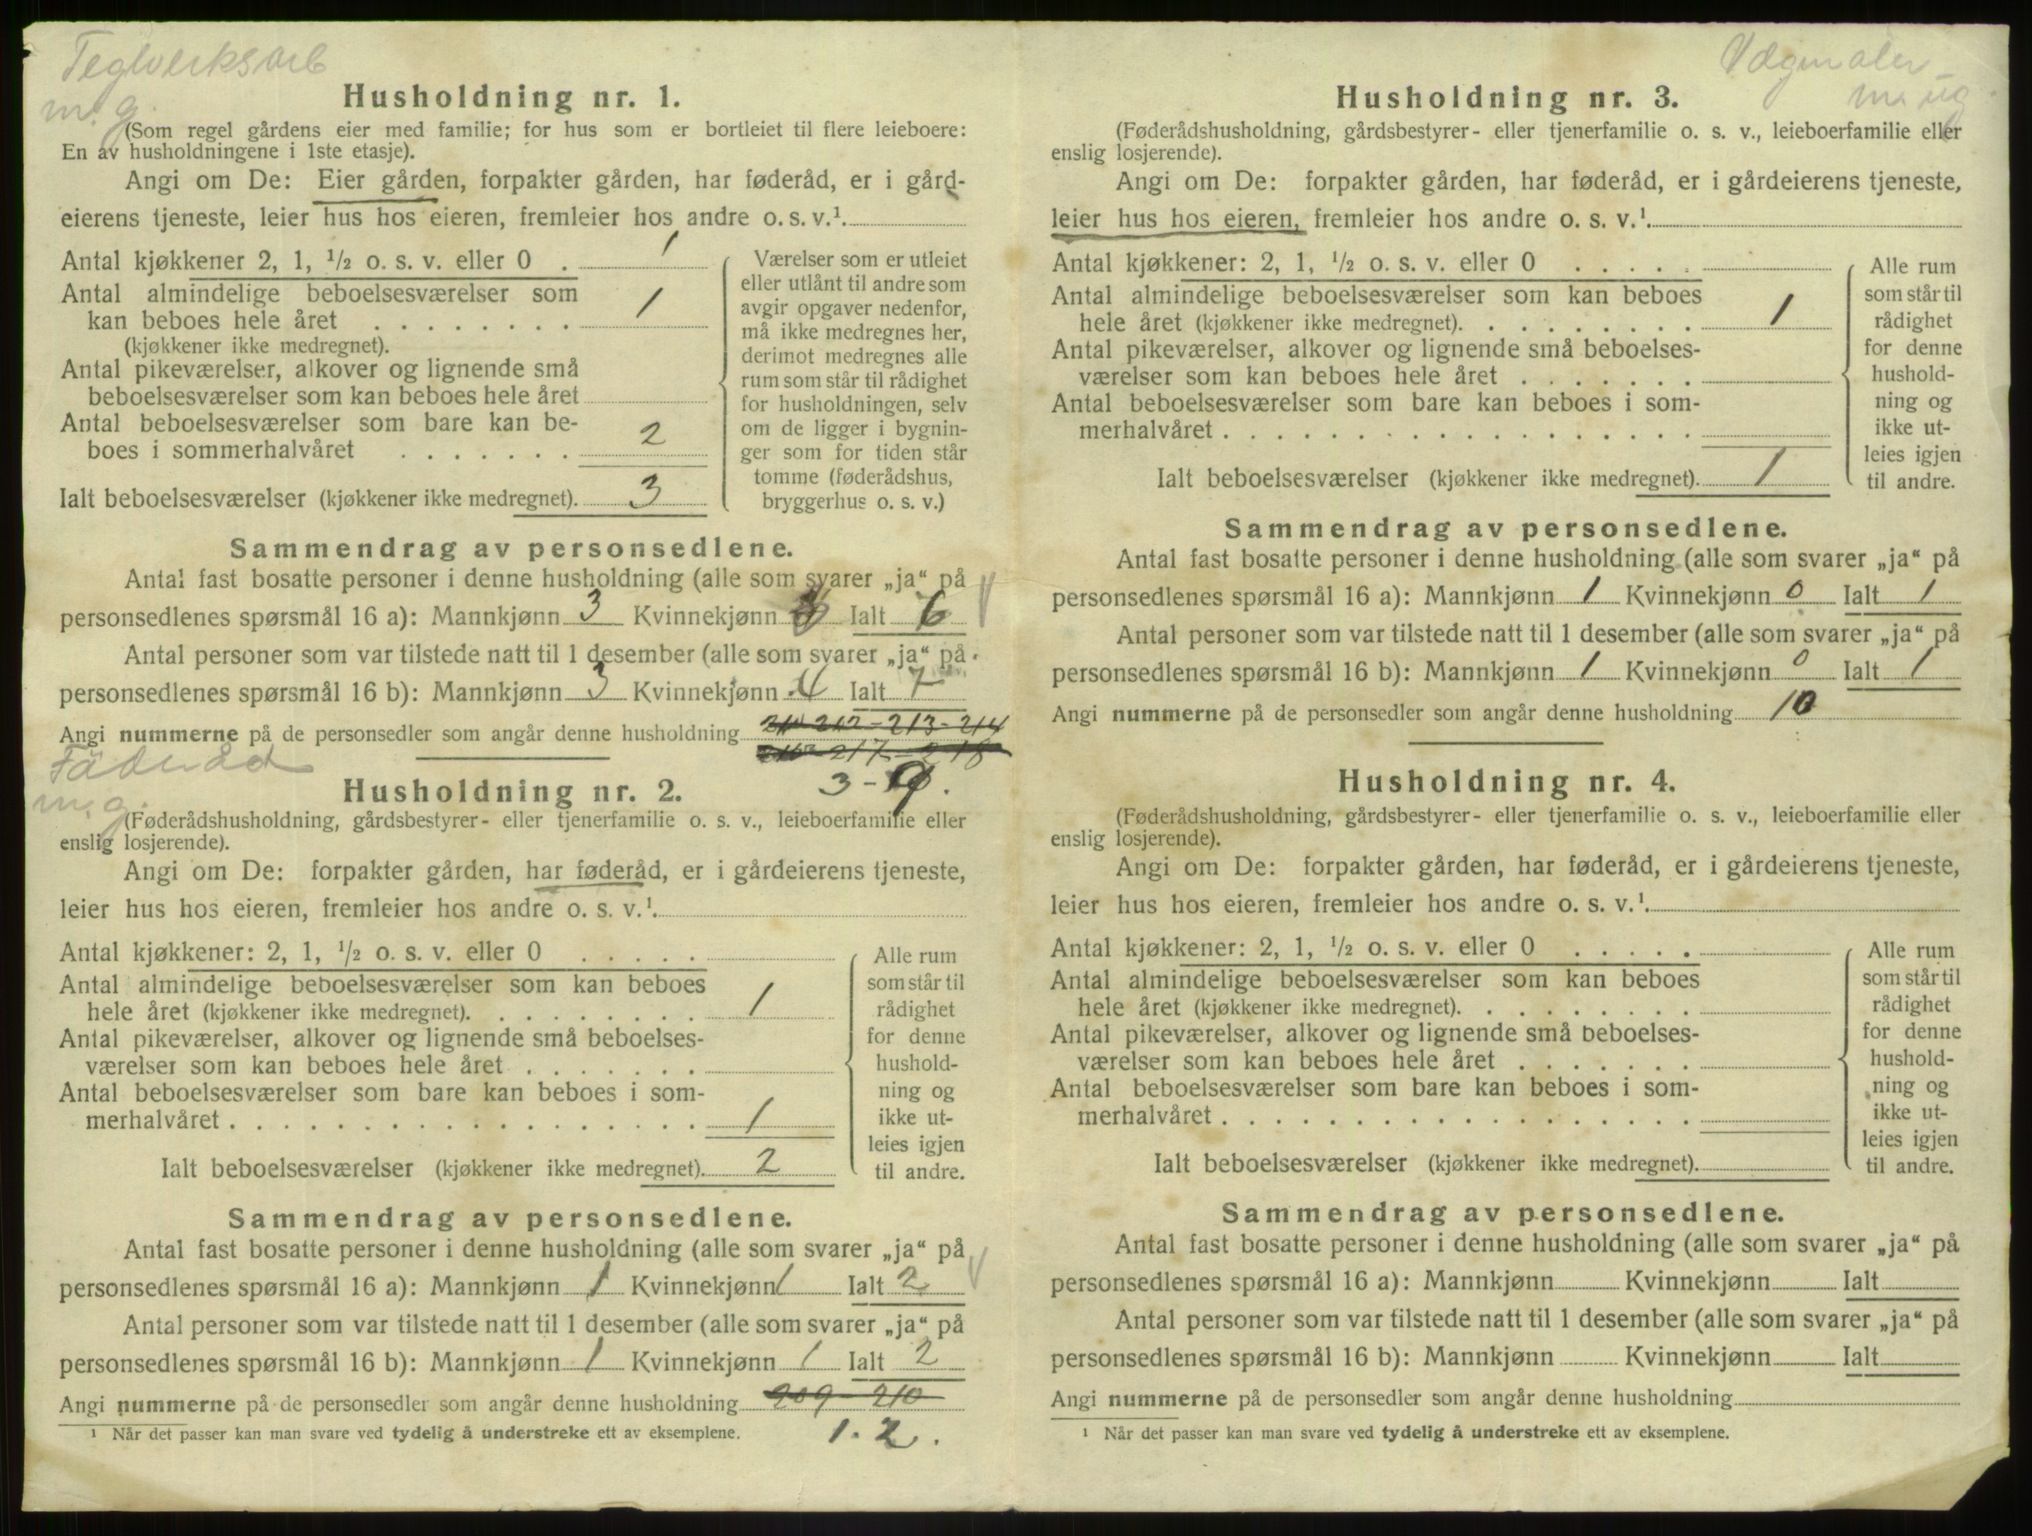 Teglverksarb
m. g.
Husholdning nr. 1.
(Som regel gårdens eier med familie; for hus som er bortleiet til flere leieboere:
En av husholdningene i 1ste etasje).
Angi om De: Eier gården, forpakter gården, har føderåd, er i gård-
eierens tjeneste, leier hus hos eieren, fremleier hos andre o. s. v.¹
Antal kjøkkener 2, 1, ½ o. s. v. eller 0 . 1
Antal almindelige beboelsesværelser som
kan beboes hele året . . . . . . . . 1
(kjøkkener ikke medregnet).
Antal pikeværelser, alkover og lignende små
beboelsesværelser som kan beboes hele året
Antal beboelsesværelser som bare kan be-
boes i sommerhalvåret . . . . . . . 2
Ialt beboelsesværelser (kjøkkener ikke medregnet). 3
Værelser som er utleiet
eller utlånt til andre som
avgir opgaver nedenfor,
må ikke medregnes her,
derimot medregnes alle
rum som står til rådighet
for husholdningen, selv
om de ligger i bygnin-
ger som for tiden står
tomme (føderådshus,
bryggerhus o. s. v.)
Sammendrag av personsedlene.
Antal fast bosatte personer i denne husholdning (alle som svarer „ja“ på
personsedlenes spørsmål 16 a): Mannkjønn 3 Kvinnekjønn Ialt 6
Antal personer som var tilstede natt til 1 desember (alle som svarer „ja“ på
personsedlenes spørsmål 16 b): Mannkjønn 3 Kvinnekjønn 4 Ialt 7
212 - 213 - 214
Angi nummerne på de personsedler som angår denne husholdning
217 - 218
3 - 9.
Føderåd
m. g.
Husholdning nr. 2.
(Føderådshusholdning, gårdsbestyrer- eller tjenerfamilie o. s. v., leieboerfamilie eller
enslig losjerende).
Angi om De: forpakter gården, har føderåd, er i gårdeierens tjeneste,
leier hus hos eieren, fremleier hos andre o. s. v.¹
Antal kjøkkener: 2, 1, ½ o. s. v. eller 0 . . . . .
Antal almindelige beboelsesværelser som kan beboes
hele året (kjøkkener ikke medregnet). . . . . . . . . 1
Antal pikeværelser, alkover og lignende små beboelses-
værelser som kan beboes hele året . . . . . . .
Antal beboelsesværelser som bare kan beboes i som-
merhalvåret . . . . . . . . . . . . . . . . . . 1
Ialt beboelsesværelser (kjøkkener ikke medregnet). 2
Alle rum
som står til
rådighet
for denne
hushold-
ning og
ikke ut-
leies igjen
til andre.
Sammendrag av personsedlene.
Antal fast bosatte personer i denne husholdning (alle som svarer „ja“ på
personsedlenes spørsmål 16 a): Mannkjønn 1 Kvinnekjønn 1 Ialt 2
Antal personer som var tilstede natt til 1 desember (alle som svarer „ja“ på
personsedlenes spørsmål 16 b): Mannkjønn 1 Kvinnekjønn 1 Ialt 2
Angi nummerne på de personsedler som angår denne husholdning 209 - 210
¹ Når det passer kan man svare ved tydelig å understreke ett av eksemplene. 1. 2.
Vægmaler
m. ug.
Husholdning nr. 3.
(Føderådshusholdning, gårdsbestyrer- eller tjenerfamilie o. s. v., leieboerfamilie eller
enslig losjerende).
Angi om De: forpakter gården, har føderåd, er i gårdeierens tjeneste,
leier hus hos eieren, fremleier hos andre o. s. v.¹
Antal kjøkkener: 2, 1, ½ o. s. v. eller 0 . . . . .
Antal almindelige beboelsesværelser som kan beboes
hele året (kjøkkener ikke medregnet). . . . . . . . . 1
Antal pikeværelser, alkover og lignende små beboelses-
værelser som kan beboes hele året . . . . . . .
Antal beboelsesværelser som bare kan beboes i som-
merhalvåret . . . . . . . . . . . . . . . . . .
Ialt beboelsesværelser (kjøkkener ikke medregnet). 1
Alle rum
som står til
rådighet
for denne
hushold-
ning og
ikke ut-
leies igjen
til andre.
Sammendrag av personsedlene.
Antal fast bosatte personer i denne husholdning (alle som svarer „ja“ på
personsedlenes spørsmål 16 a): Mannkjønn 1 Kvinnekjønn 0 Ialt 1
Antal personer som var tilstede natt til 1 desember (alle som svarer „ja“ på
personsedlenes spørsmål 16 b): Mannkjønn 1 Kvinnekjønn 0 Ialt 1
Angi nummerne på de personsedler som angår denne husholdning 10
Husholdning nr. 4.
(Føderådshusholdning, gårdsbestyrer- eller tjenerfamilie o. s. v., leieboerfamilie eller
enslig losjerende).
Angi om De: forpakter gården, har føderåd, er i gårdeierens tjeneste,
leier hus hos eieren, fremleier hos andre o. s. v.¹
Antal kjøkkener: 2, 1, ½ o. s. v. eller 0 . . . . .
Antal almindelige beboelsesværelser som kan beboes
hele året (kjøkkener ikke medregnet). . . . . . . . .
Antal pikeværelser, alkover og lignende små beboelses-
værelser som kan beboes hele året . . . . . . .
Antal beboelsesværelser som bare kan beboes i som-
merhalvåret . . . . . . . . . . . . . . . . . .
Ialt beboelsesværelser (kjøkkener ikke medregnet).
Alle rum
som står til
rådighet
for denne
hushold-
ning og
ikke ut-
leies igjen
til andre.
Sammendrag av personsedlene.
Antal fast bosatte personer i denne husholdning (alle som svarer „ja“ på
personsedlenes spørsmål 16 a): Mannkjønn Kvinnekjønn Ialt
Antal personer som var tilstede natt til 1 desember (alle som svarer „ja“ på
personsedlenes spørsmål 16 b): Mannkjønn Kvinnekjønn Ialt
Angi nummerne på de personsedler som angår denne husholdning
¹ Når det passer kan man svare ved tydelig å understreke ett av eksemplene.